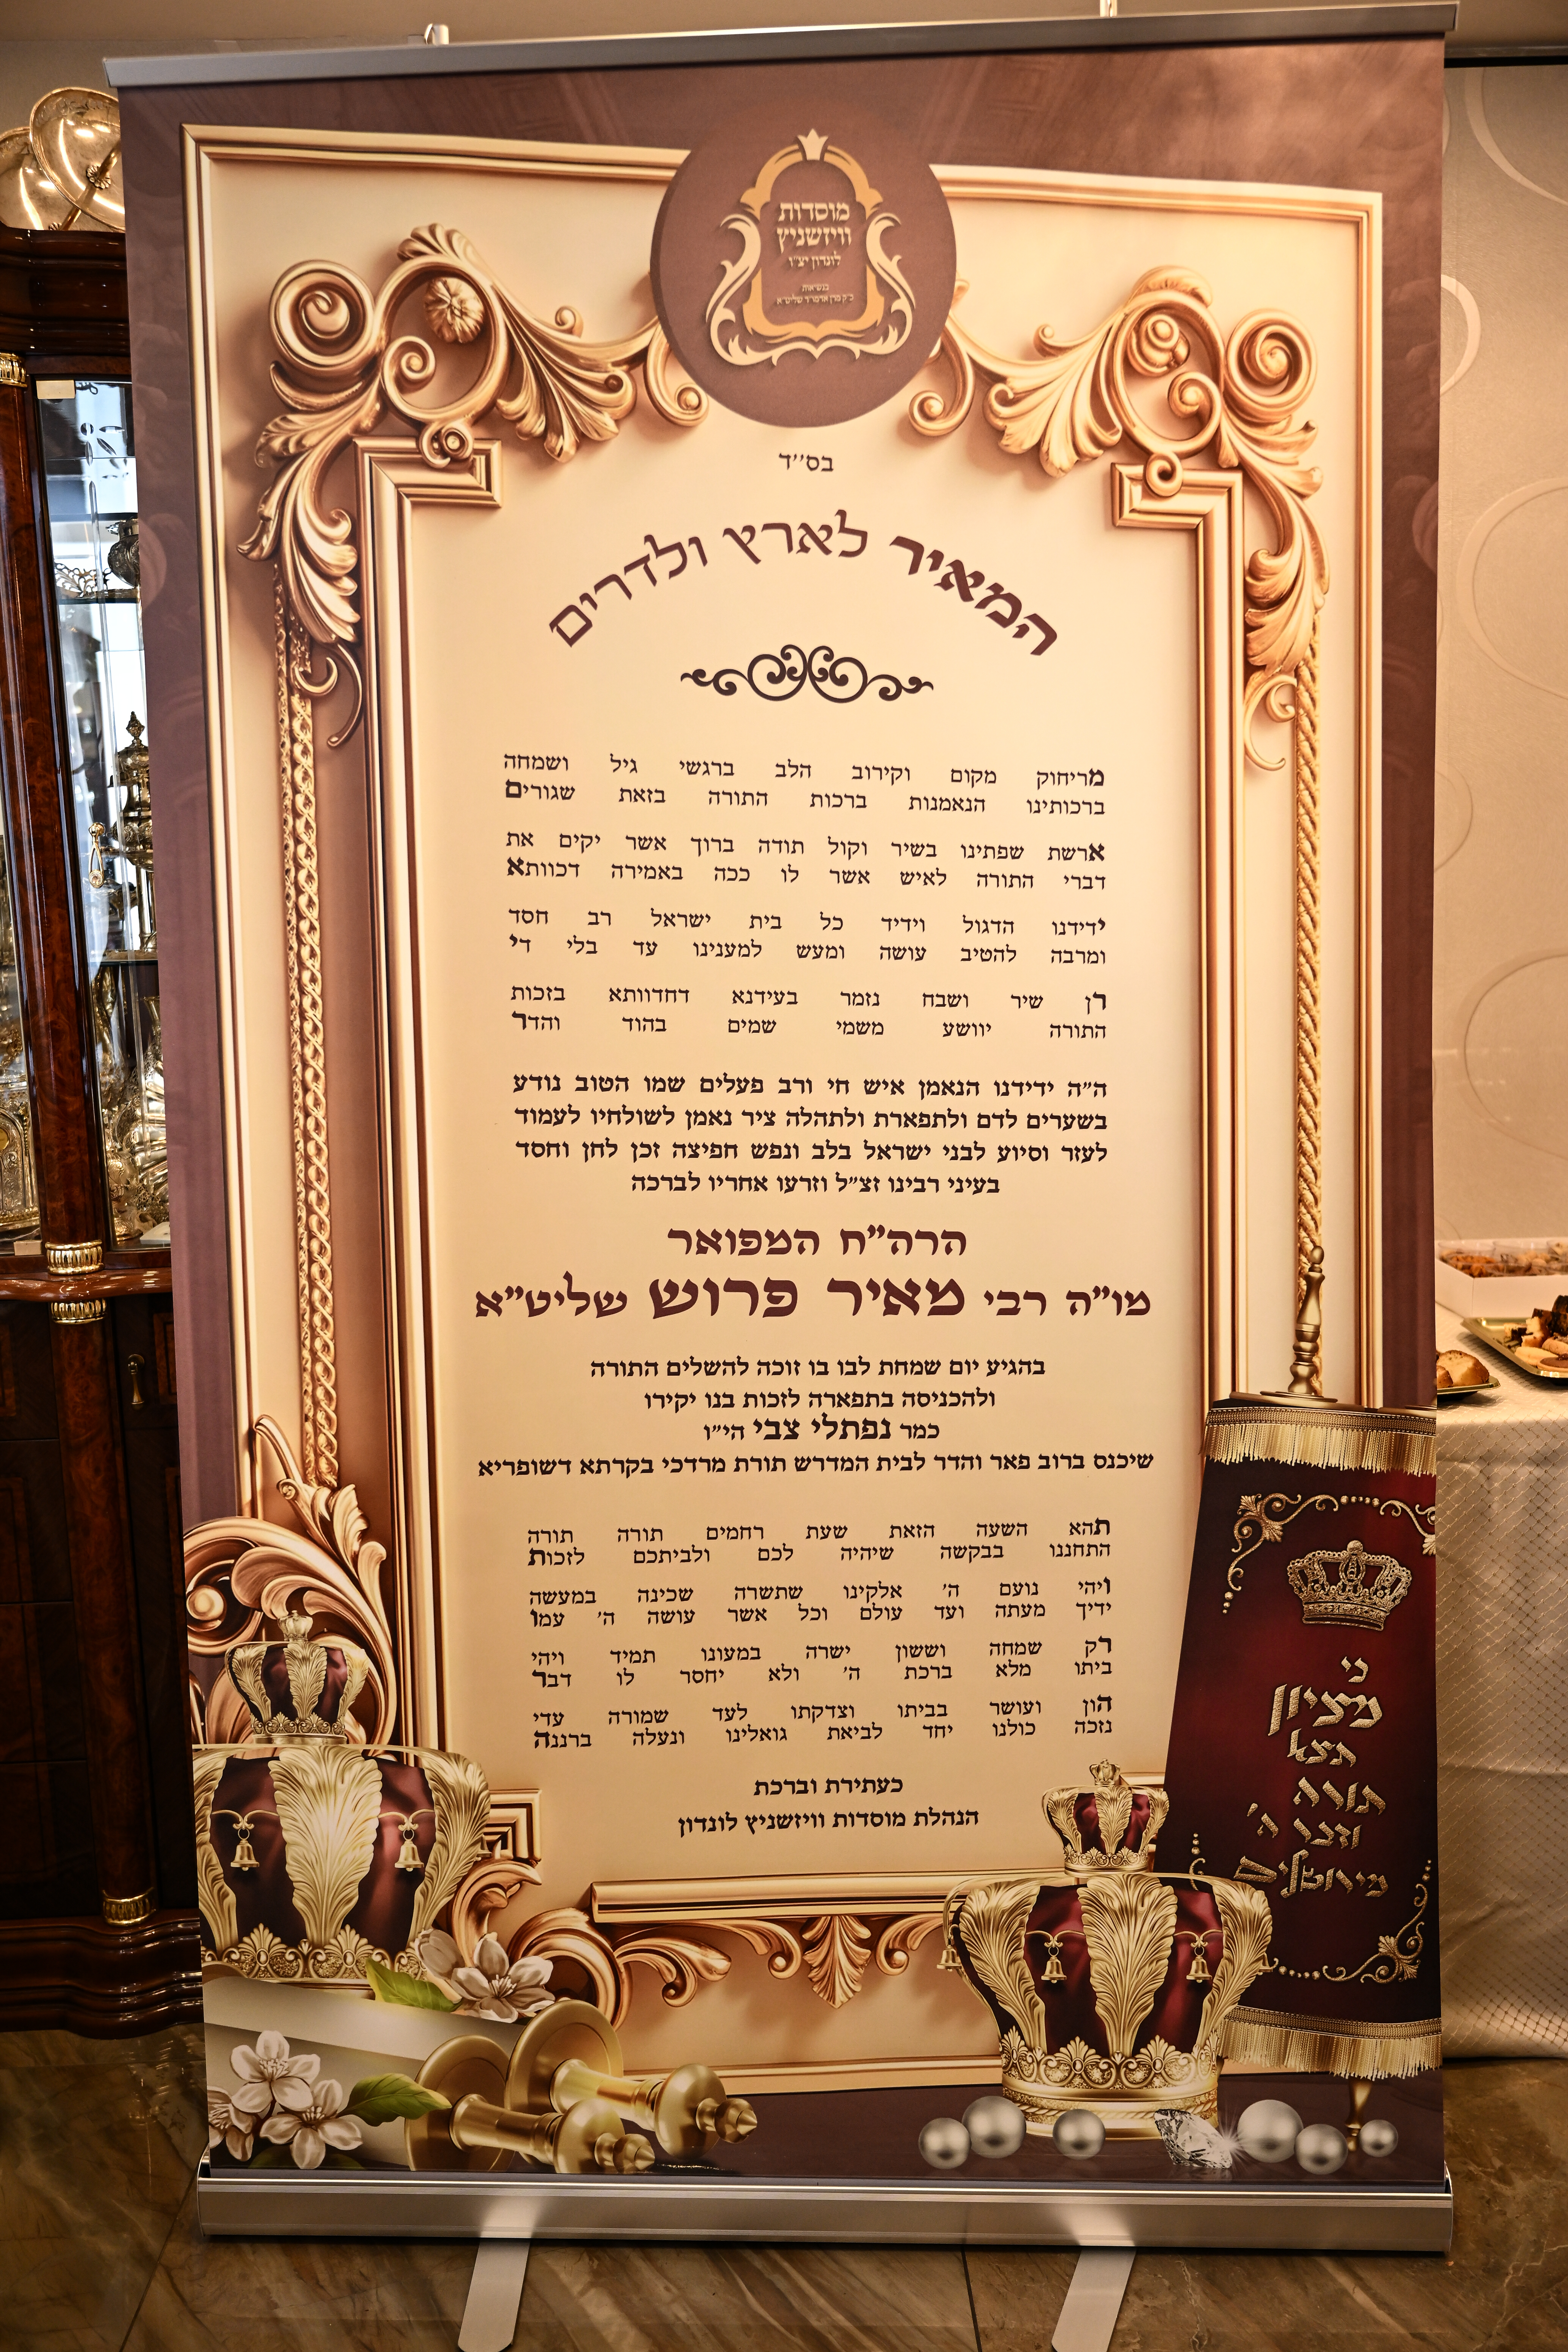 מוסדות
וויזשניץ
לונדון יצ"ו
בנשיאות
כ"ק מרן אדמו"ר שליט"א
בס''ד
המאיר לארץ ולדרים
מריחוק מקום וקירוב הלב ברגשי גיל ושמחה
ברכותינו הנאמנות ברכות התורה בזאת שגורים
ארשת שפתינו בשיר וקול תודה ברוך אשר יקים את
דברי התורה לאיש אשר לו ככה באמירה דכוותא
ידידנו הדגול וידיד כל בית ישראל רב חסד
ומרבה להטיב עושה ומעש למענינו עד בלי די
רן שיר ושבח נזמר בעידנא דחדוותא בזכות
התורה יוושע משמי שמים בהוד והדר
ה"ה ידידנו הנאמן איש חי ורב פעלים שמו הטוב נודע
בשערים לדם ולתפארת ולתהלה ציר נאמן לשולחיו לעמוד
לעזר וסיוע לבני ישראל בלב ונפש חפיצה זכן לחן וחסד
בעיני רבינו זצ"ל וזרעו אחריו לברכה
הרה"ח המפואר
מו"ה רבי מאיר פרוש שליט"א
בהגיע יום שמחת לבו בו זוכה להשלים התורה
ולהכניסה בתפארה לזכות בנו יקירו
כמר נפתלי צבי הי"ו
שיכנס ברוב פאר והדר לבית המדרש תורת מרדכי בקרתא דשופריא
תהא השעה הזאת שעת רחמים תורה תורה
התחננו בבקשה שיהיה לכם ולביתכם לזכות
ויהי נועם ה' אלקינו שתשרה שכינה במעשה
ידיך מעתה ועד עולם וכל אשר עושה ה' עמו
רק שמחה וששון ישרה במעונו תמיד ויהי
ביתו מלא ברכת ה' ולא יחסר לו דבר
הון ועושר בביתו וצדקתו לעד שמורה עדי
נזכה כולנו יחד לביאת גואלינו ונעלה ברננה
כעתירת וברכת
הנהלת מוסדות וויזשניץ לונדון
כי
מציון
תצא
תורה
ודבר ה'
מירושלים